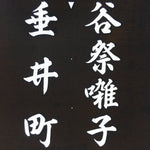 谷祭囃子
垂井町